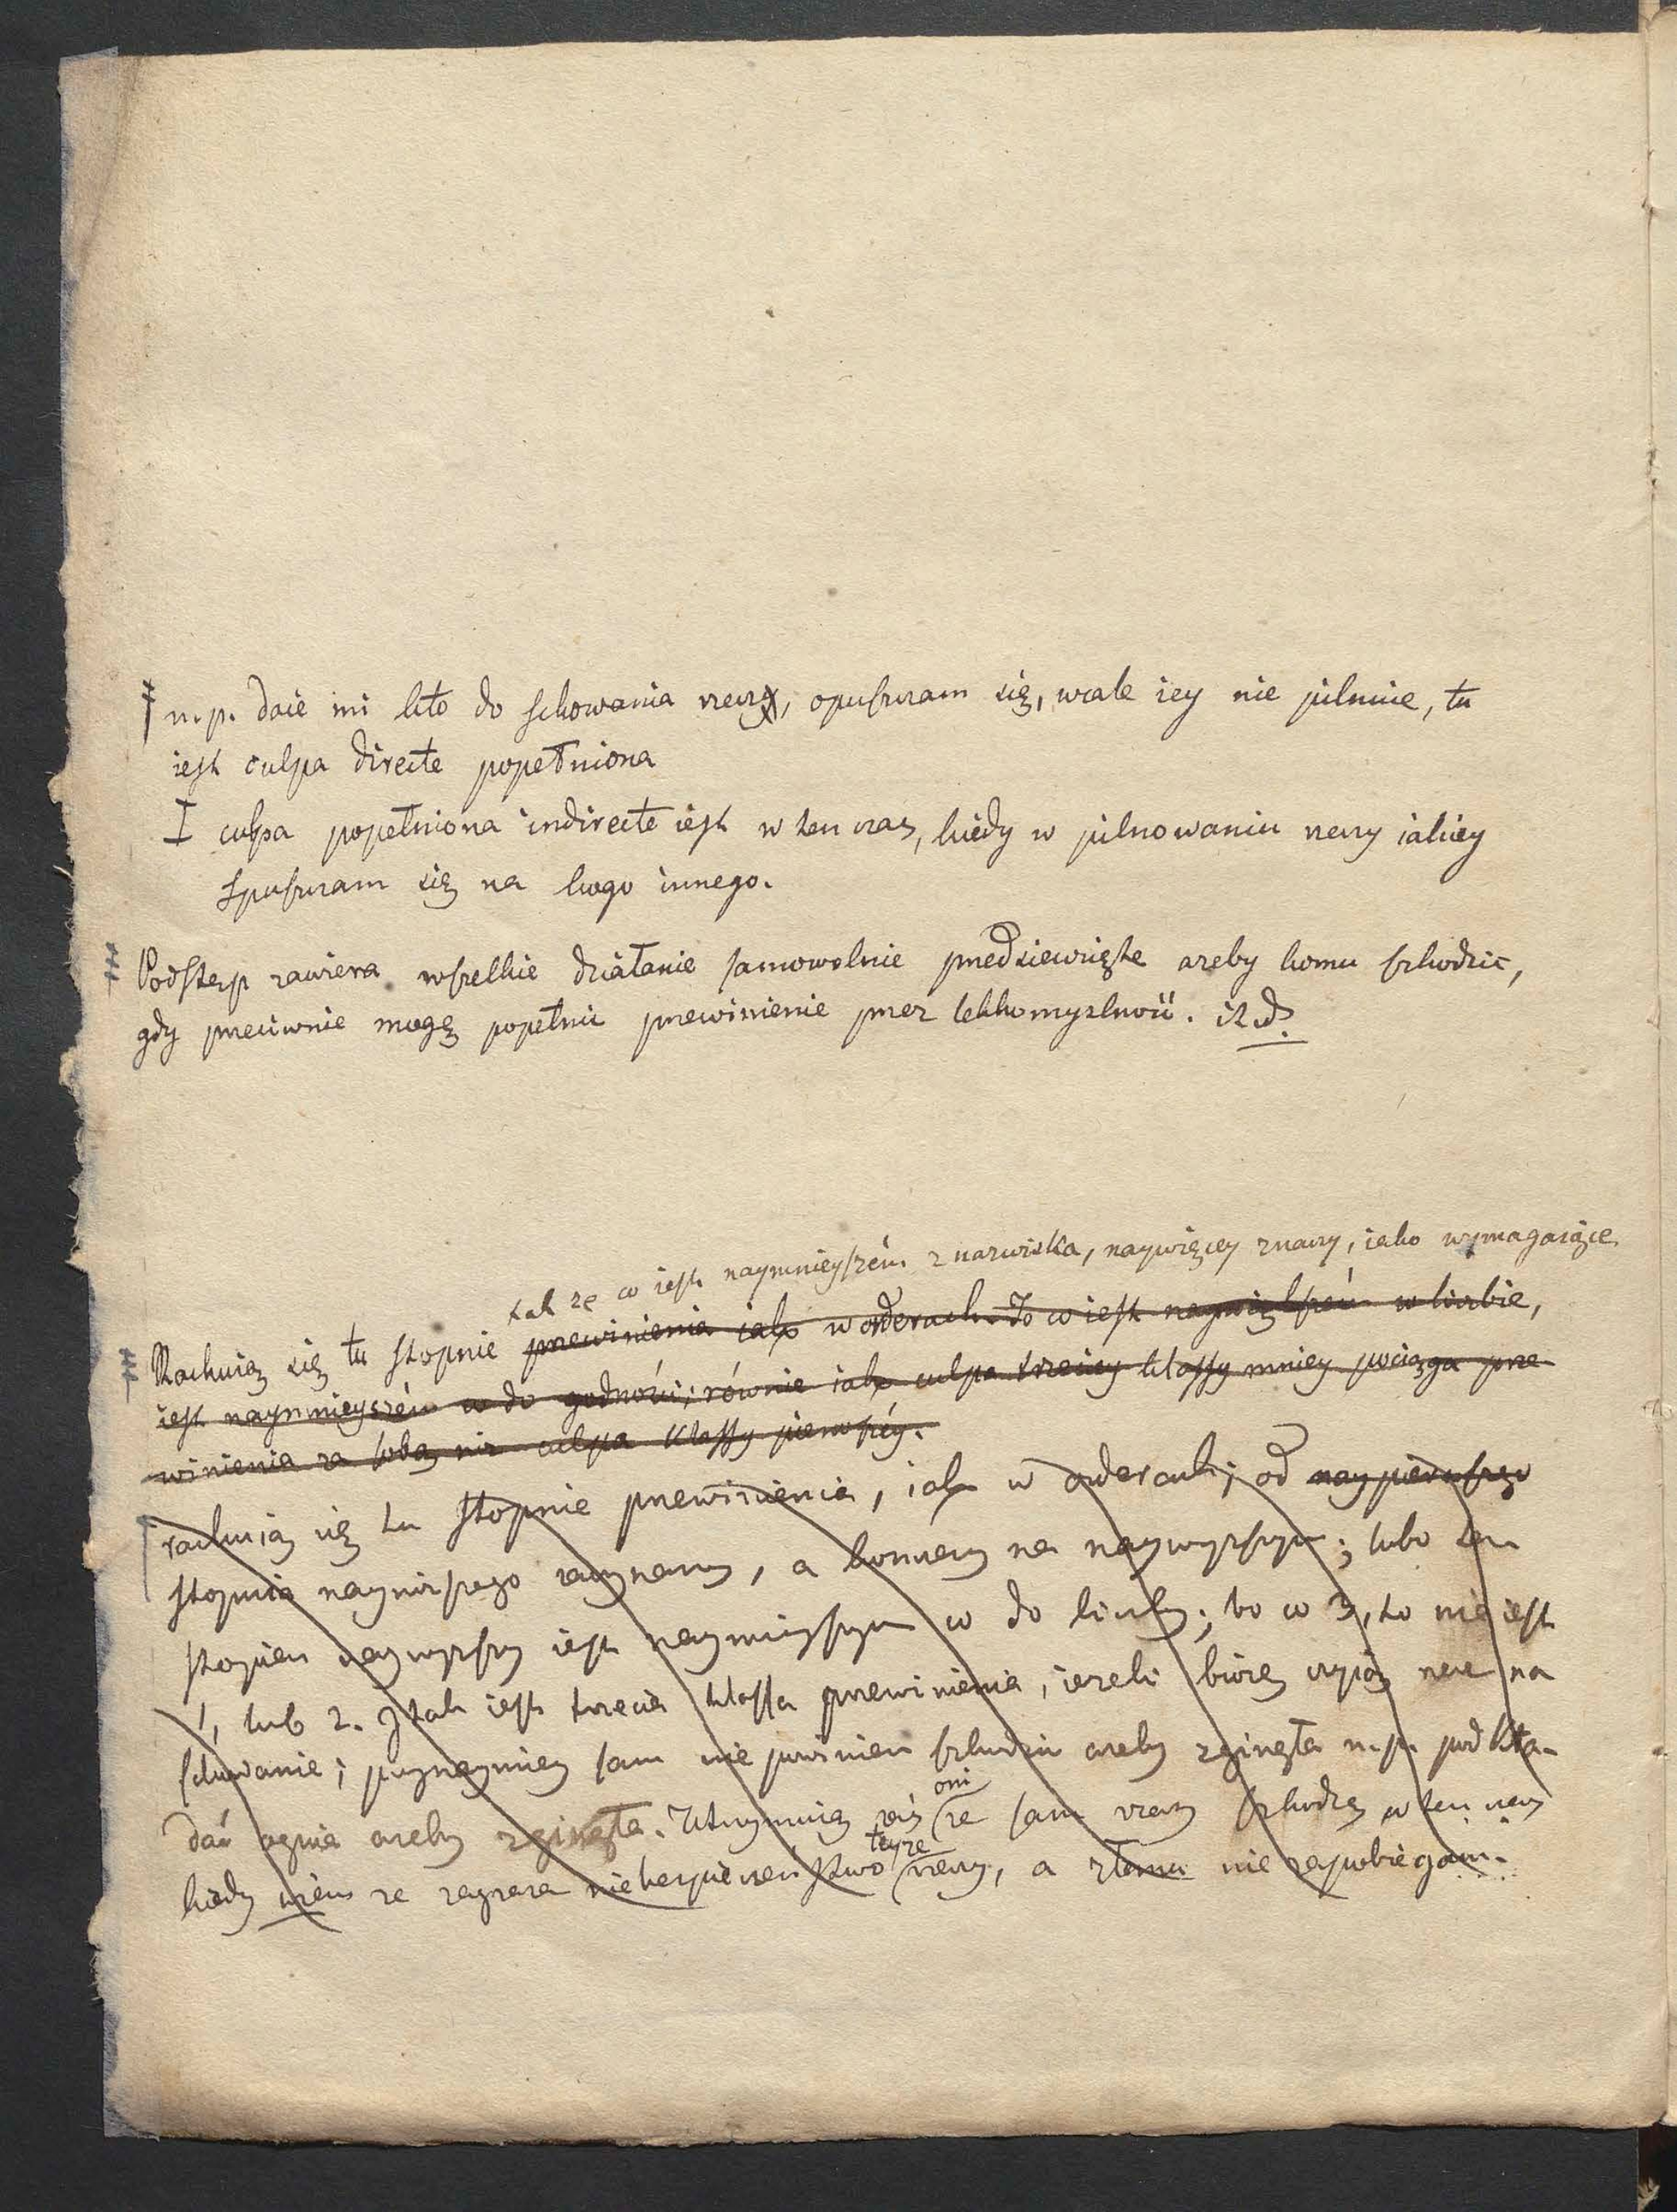 n.p. daie mi kto do schowania rzeczy, opuszczam się, wcale iey nie pilnuię, tu
iest culpa directe popełniona
I culpa popełniona indirecte iest w ten czas, kiedy w pilnowaniu rzeczy iakiey
spuszczam się na kogo innego.
Podstęp zawiera wszelkie działanie samowolnie przedsiewzięte azeby komu szkodzić,
gdy przeciwnie mogę popełnić przewinienie przez lekkomyslność. itd.
tak ze co iest naymnieyszém z nazwiska, naywięcey znaczy, iako wymagaiące
Rachuią się tu stopnie przewinienia iako w orderach. To co iest naywiększém w liczbie,
iest naymnieyszém co do godności; równie iako culpa trzeciey klassy mniey pociąga prze-
winienia za sobą niz culpa klassy pierwszéy.
rachuią się tu stopnie przewinienia, iak w orderach; od naypierwszego
stopnia nayniższego zaczynamy, a kończemy na naywyższym; lubo ten
stopien naywyższy iest naymnieyszym co do liczby; bo co 3, to nie iest
1, lub 2. I tak iest trzecia klassa przewinienia, iezeli biorę czyią rzecz na
schowanie; przynaymniey sam nie powinien szkodzić azeby zginęła n.p. podkła-
dać ognia azeby zginęła. Utrzymuią zaś oni ze sam czasem szkodzę w ten czas
kiedy wiem ze zagraza niebezpieczeństwo teyze rzeczy, a złemu nie zapobiegam.